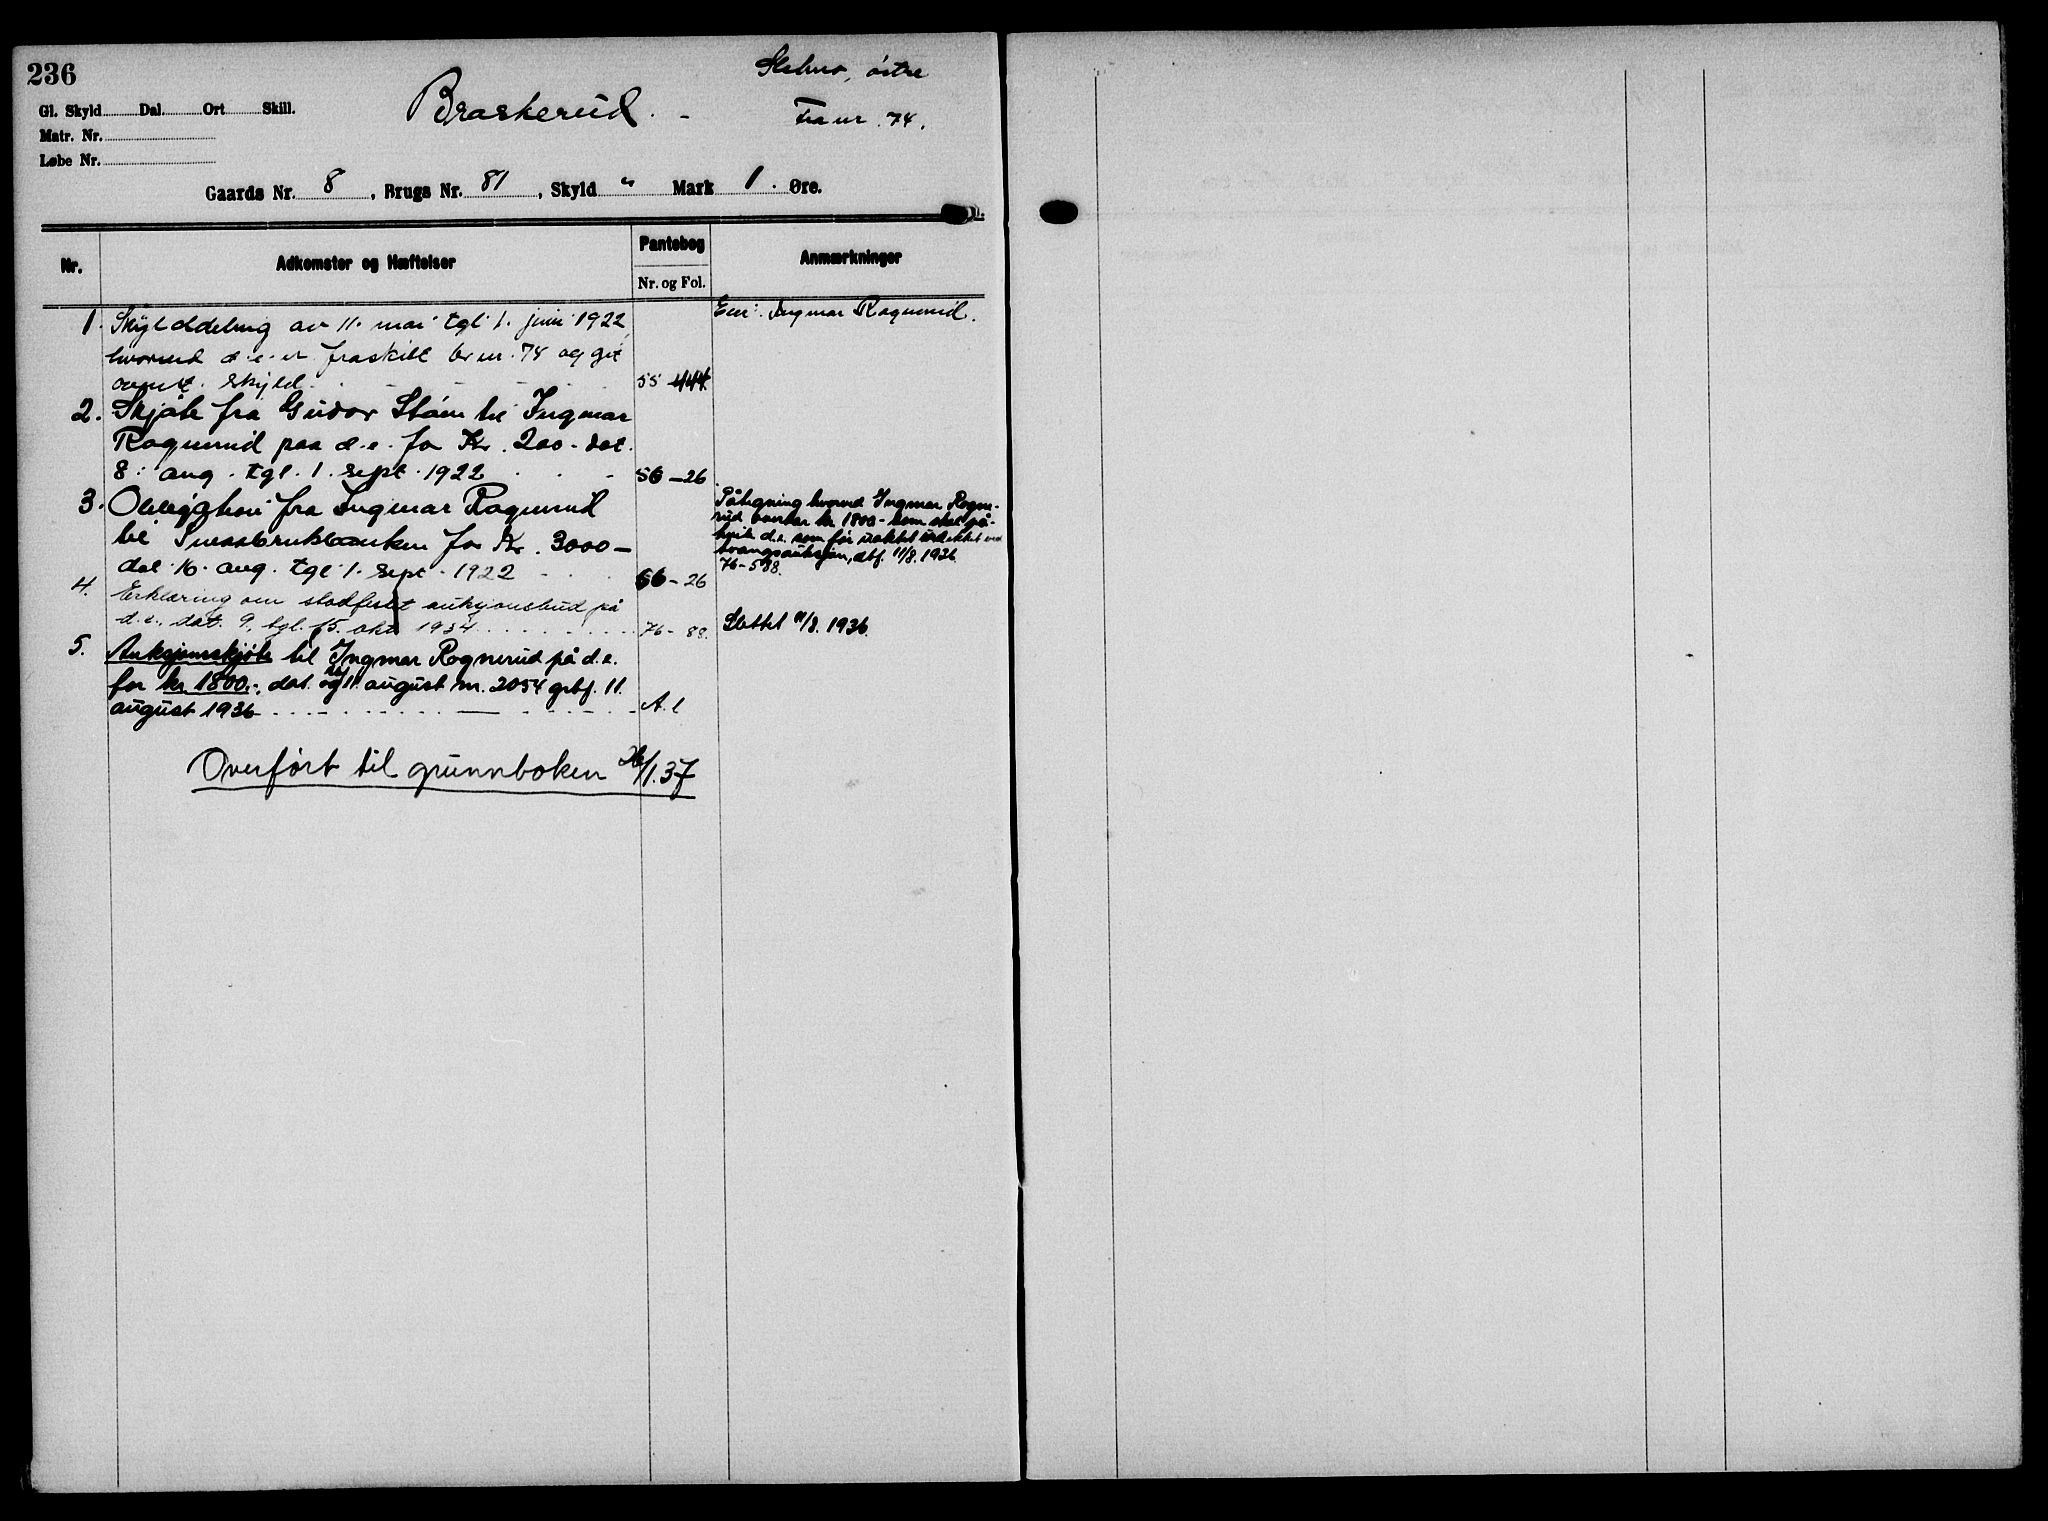 236
Gl. Skyld Dal. Ort Skill.
Matr. Nr.
Løbe Nr.
Braskerud. -
østre
Fra nr. 74.
Gaards Nr. 8, Brugs Nr. 81, Skyld " Mark 1. Øre.
Nr.
Adkomster og Hæftelser
Pantebog
Nr. og Fol.
Anmærkninger
1. Skylddeling av 11. mai tgl. 1. juni 1922,
hvorved d.e. er fraskilt br.nr. 74 og git
skyld. 55-444
Eier: Ingmar Rognerud.
2. Skjøte fra Gudor Støen til Ingmar
Rognerud paa d.e. for Kr. 200.- dat.
8. aug. tgl. 1. sept. 1922 56-26
3. Obligation fra Ingmar Rognerud
til Smaabrukbanken for Kr. 3000-
dat. 16. aug. tgl. 1. sept. 1922 56-26
Påtegning hvorved Ingmar Rogne-
rud kr. 1800- som skal på-
d.e. som før ved
tvangsauksjon, dbf. 11/8. 1936
76-588.
4. Erklæring om stadfestet auksjonsbud på
d.e., dat. 9, tgl. 15. okt 1934 76-88.
Slettet 11/8. 1936.
5. Auksjonsskjøte til Ingmar Rognerud på d.e.
for kr. 1800.-, dat. og 11. august nr. 2054 grbf. 11.
august 1936 A. l
Overført til grunnboken 26/1.37